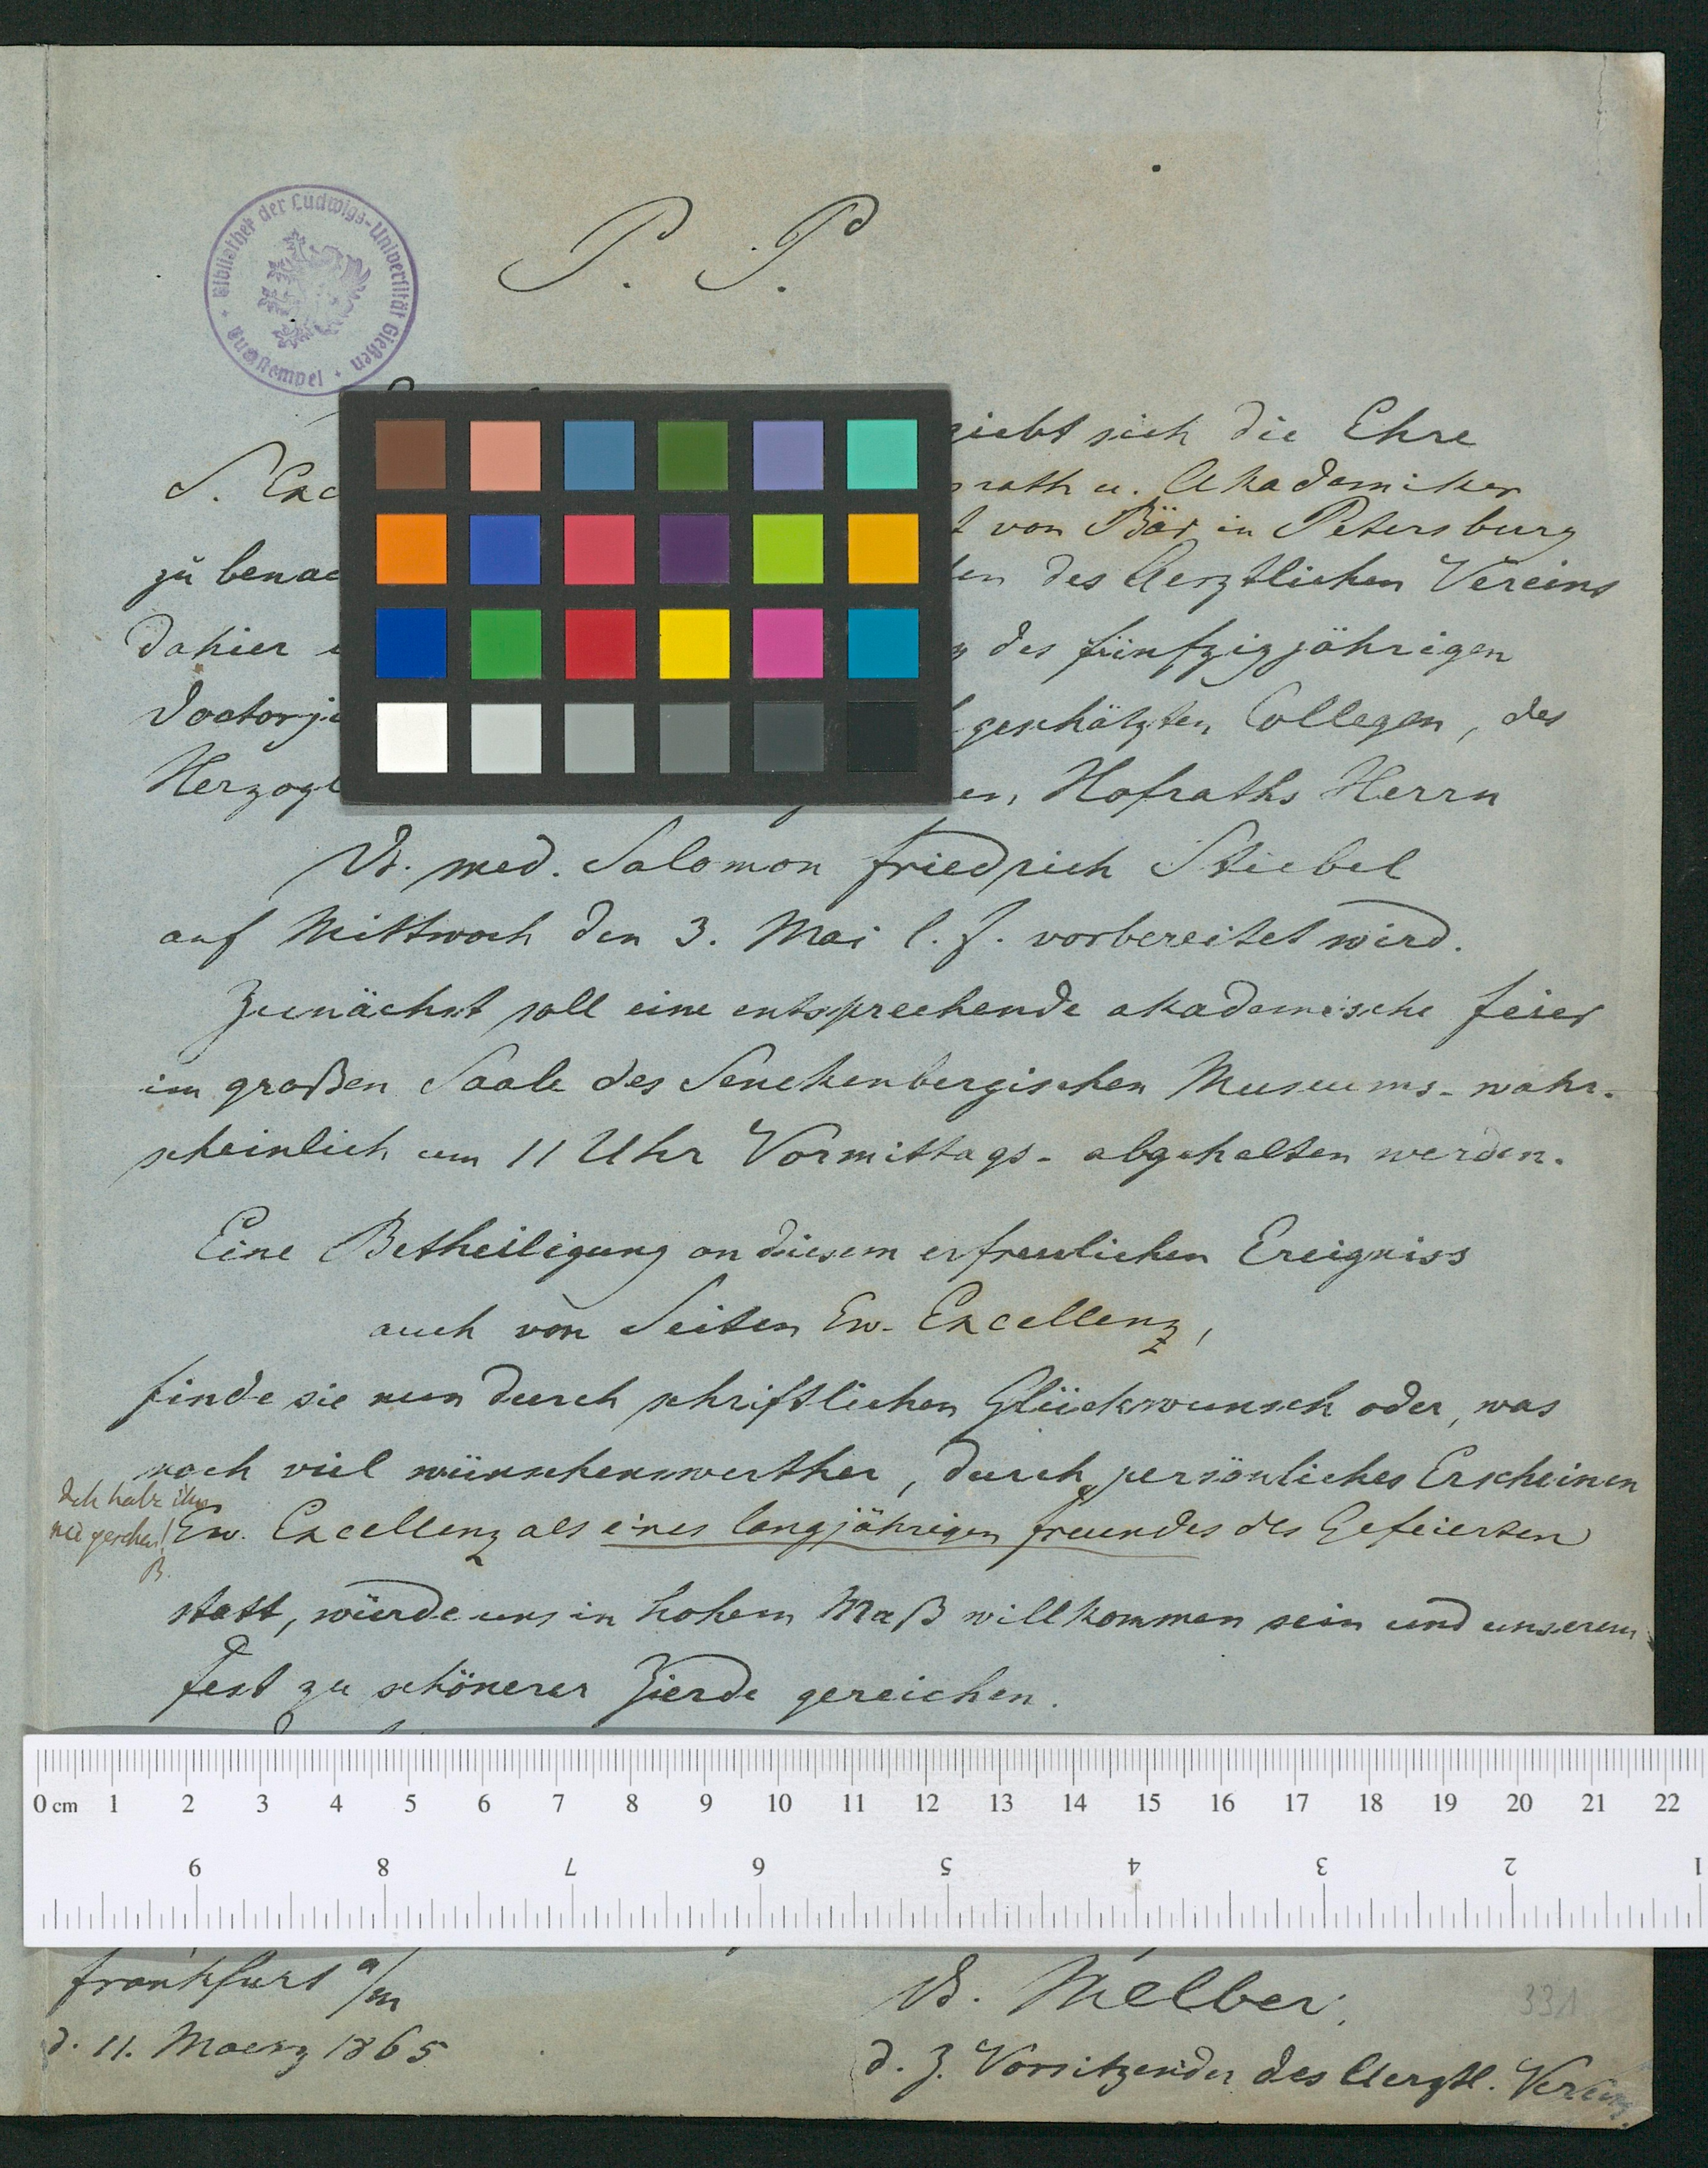 Bibliothek der Ludwigs-Universität Gießen
P. P.
giebt sich die Ehre
S. Exc rath u. Akademiker
von Bär in Petersburg
zu benac des Aerztlichen Vereins
dahier des fünfzigjährigen
Doctorju geschätzten Collegen, des
Herzogl en, Hofraths Herrn
Dr. med. Salomon Friedrich Stiebel
auf Mittwoch den 3. Mai l. J. vorbereitet wird.
Zunächst soll eine entsprechende akademische Feier
im großen Saale des Senckenbergischen Museums - wahr-
scheinlich um 11 Uhr Vormittags - abgehalten werden.
Eine Betheiligung an diesem erfreulichen Ereigniss
auch von Seiten Ew. Excellenz,
finde sie nun durch schriftlichen Glückwunsch oder, was
noch viel wünschenswerther, durch persönliches Erscheinen
Ich habe ihn
nie gesehen!
B.
Ew. Excellenz als eines langjährigen Freundes des Gefeierten
statt, würde uns in hohem Maß willkommen sein und unserem
Fest zu schönerer Zierde gereichen.
0 cm 1 2 3 4 5 6 7 8 9 10 11 12 13 14 15 16 17 18 19 20 21 22
9 8 7 6 5 4 3 2 1
Frankfurt a/m
d. 11. Maerz 1865
Dr. Melber,
331
d. Z. Vorsitzender des Aerztl. Vereins.